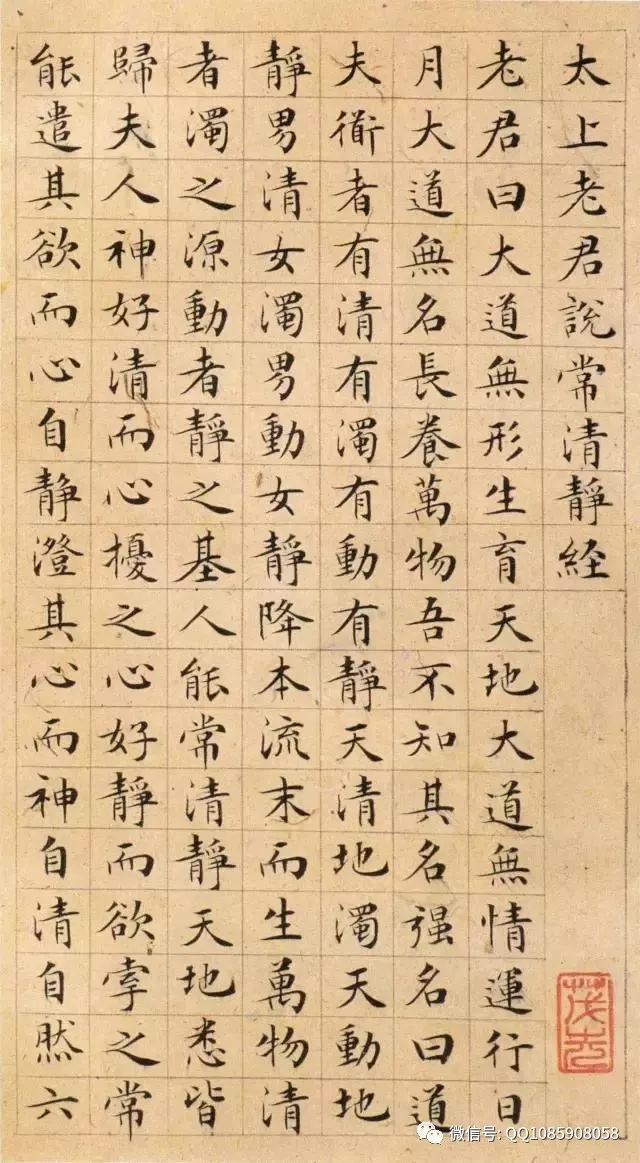 太上老君說常清靜経
老君曰大道無形生育天地大道無情運行日
月大道無名長養萬物吾不知其名强名曰道
夫衜者有清有濁有動有靜天清地濁天動地
靜男清女濁男動女靜降本流末而生萬物清
者濁之源動者靜之基人能常清靜天地悉皆
歸夫人神好清而心擾之心好靜而欲牽之常
能遣其欲而心自静澄其心而神自清自然六
微信号: QQ1085908058